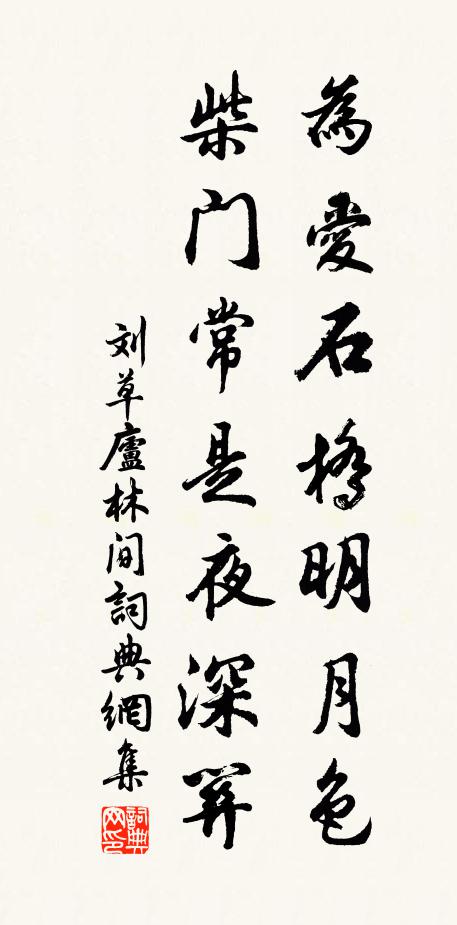 為愛石橋明月色
柴门常是夜深開
刘草廬林间詞典網集
詞典网印